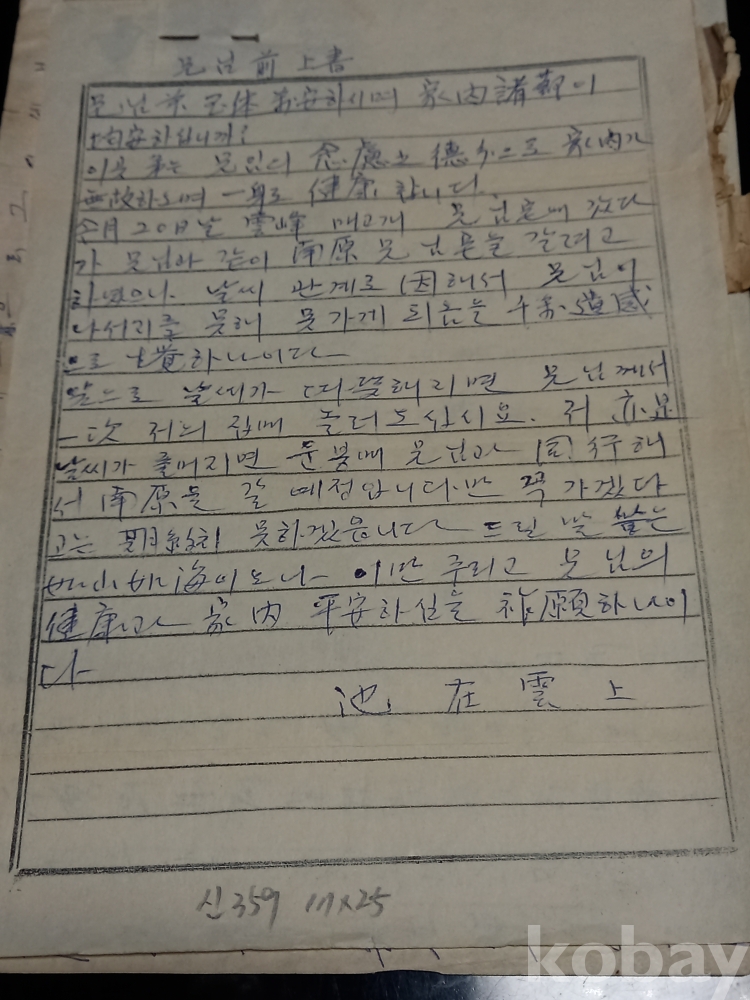 兄님 前 上書
兄님 玉体 万安하시며 家內諸節이
均安하십니까?
이곳 弟는 兄님의 念慮之德分으로 家內가
無故하오며 一身도 健康합니다.
今月 20日날 雲峰 매고개 兄님宅에 갔다
가 兄님과 같이 南原 兄님宅을 갈려고
하였으나 날씨 관계로 因해서 兄님이
나서지를 못해 못가게 되옴을 千萬遺感
으로 生覺하나이다
앞으로 날씨가 따뜻해지면 兄님께서
一次 저의 집에 놀러오십시요. 저 亦是
날씨가 풀어지면 운봉에 兄님과 同行해
서 南原을 갈 예정입니다만 꼭 가겠다
고는 期約치 못하겠읍니다 드릴 말 은
如山如海이오나 이만 주리고 兄님의
健康과 家內 平安하심을 祈願하나이
다
池 在 雲 上
신359 17x25
kobay